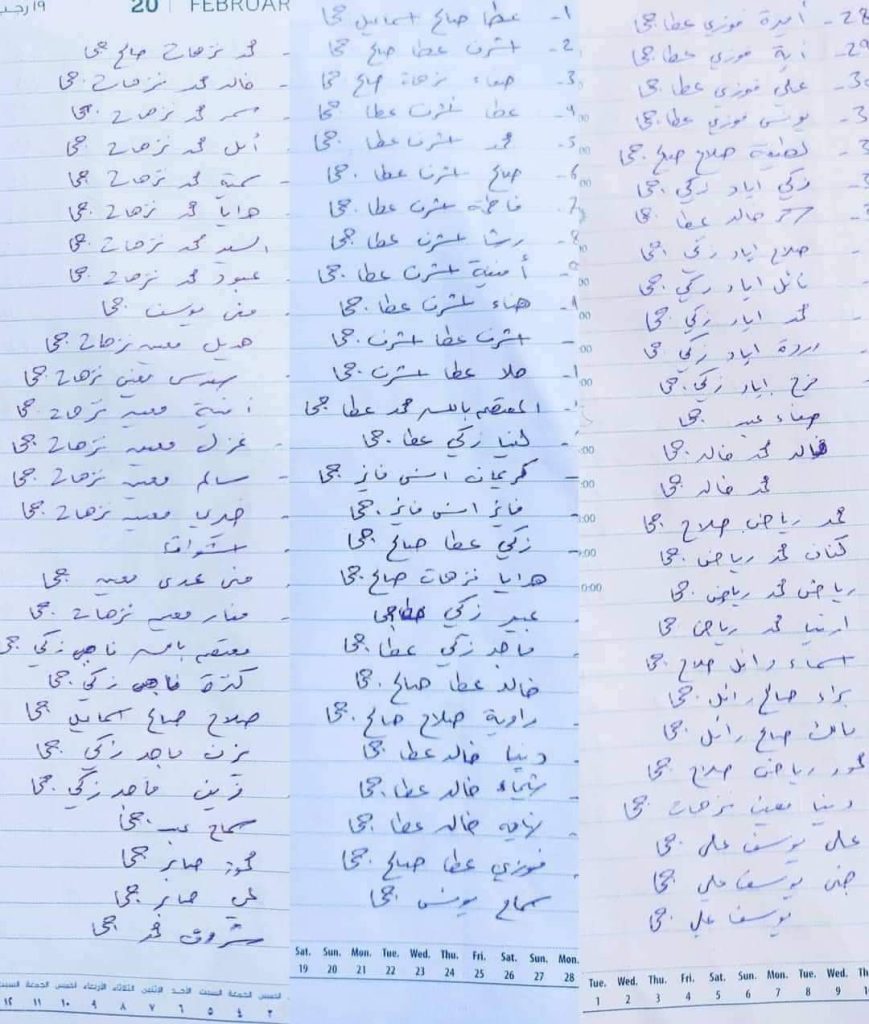 28- أميرة فوزي عطا جحا
29- آية فوزي عطا جحا
علي فوزي عطا جحا
يونس فوزي عطا جحا
لطيفة صلاح صالح جحا
زكي اياد زكي جحا
خالد عطا جحا
صلاح اياد زكي جحا
نائل اياد زكي جحا
محمد اياد زكي جحا
وردة اياد زكي جحا
فرح اياد زكي جحا
صفاء عبد جحا
خالد محمد خالد جحا
محمد خالد جحا
محمد رياض صلاح جحا
كنان محمد رياض جحا
رياض محمد رياض جحا
محمد رياض جحا
اسماء وائل صلاح جحا
براء صالح وائل جحا
صالح وائل جحا
محمود رياض صلاح جحا
دينا معين نزهات جحا
علي يوسف علي جحا
يوسف علي جحا
يوسف علي جحا
Tue. Wed. Thu. Fri. Sat. Sun. Mon. Tue. Wed. Th
1 2 3 4 5 6 7 8 9
1- عطا صالح اسماعيل جحا
2- اشرف عطا صالح جحا
3- صفاء نزهات صالح جحا
4- عطا اشرف عطا جحا
5- محمد اشرف عطا جحا
6- صالح اشرف عطا جحا
7- فاطمة اشرف عطا جحا
8- رشا اشرف عطا جحا
أمنية اشرف عطا جحا
هناء اشرف عطا جحا
اشرف عطا اشرف جحا
حلا عطا اشرف جحا
المعتصم بالله محمد عطا جحا
لينا زكي عطا جحا
كريمان انس فايز جحا
فايز انس فايز جحا
زكي عطا صالح جحا
هدايا نزهات صالح جحا
عبير زكي عطا جحا
ماجد زكي عطا جحا
خالد عطا صالح جحا
راوية صلاح صالح جحا
دينا خالد عطا جحا
شيماء خالد عطا جحا
خالد عطا جحا
فوزي عطا صالح جحا
سماح يونس جحا
Sat. Sun. Mon. Tue. Wed. Thu. Fri. Sat. Sun. Mon.
19 20 21 22 23 24 25 26 27 28
20 FEBRUAR
محمد نزهات صالح جحا
خالد محمد نزهات جحا
سمر محمد نزهات جحا
أمل محمد نزهات جحا
سمية محمد نزهات جحا
هدايا محمد نزهات جحا
السيد محمد نزهات جحا
عبود محمد نزهات جحا
منى يوسف جحا
هديل معين نزهات جحا
سندس معين نزهات جحا
أمنية معين نزهات جحا
غزل معين نزهات جحا
سالم معين نزهات جحا
معين نزهات جحا
اشواق
منى عدي معين جحا
منار معين نزهات جحا
معتصم بالله ماجد زكي جحا
كنزة ماجد زكي جحا
صلاح صالح اسماعيل جحا
يزن ماجد زكي جحا
زين ماجد زكي جحا
سماح عبد جحا
صابر جحا
صابر جحا
شروق محمد جحا
الخميس الجمعة السبت الاحد الاثنين الثلاثاء الأربعاء الخميس الجمعة السبت
٣ ٤ ٥ ٦ ٧ ٨ ٩ ١٠ ١١ ١٢